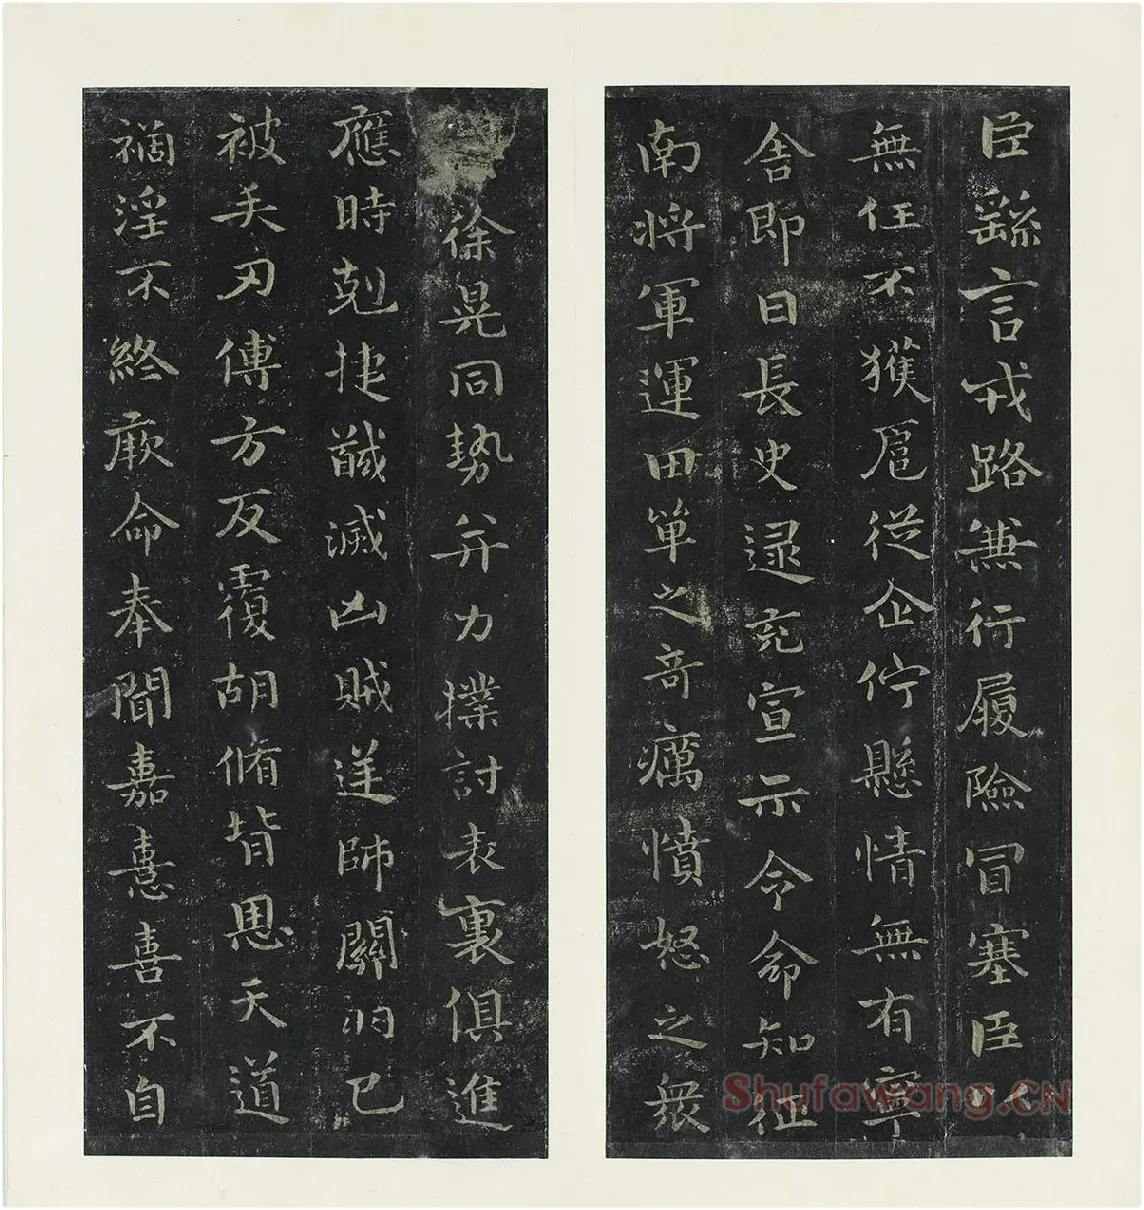 臣繇言戎路兼行履險冒寒臣以
無任不獲扈從企佇懸情無有寧
舍即日長史逯充宣示令命知征
南將軍運田單之奇癘憤怒之眾
徐晃同勢并力撲討表裏俱進
應時剋捷馘滅凶賊逆帥關羽已
被矢刃傅方反覆胡脩背恩天道
禍淫不終厥命奉聞嘉憙喜不自
Shufawang.CN